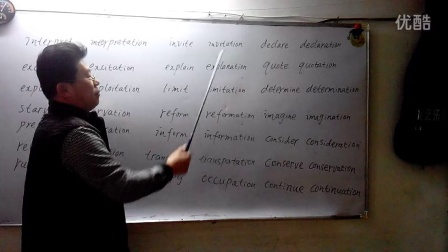 YOUKU 优酷
Interpret interpretation invite invitation declare declaration
excitation explain explanation quote quotation
exploitation limit limitation determine determination
starvation reform reformation imagine imagination
inform information consider consideration
transportation Conserve conservation
occupation continue continuation